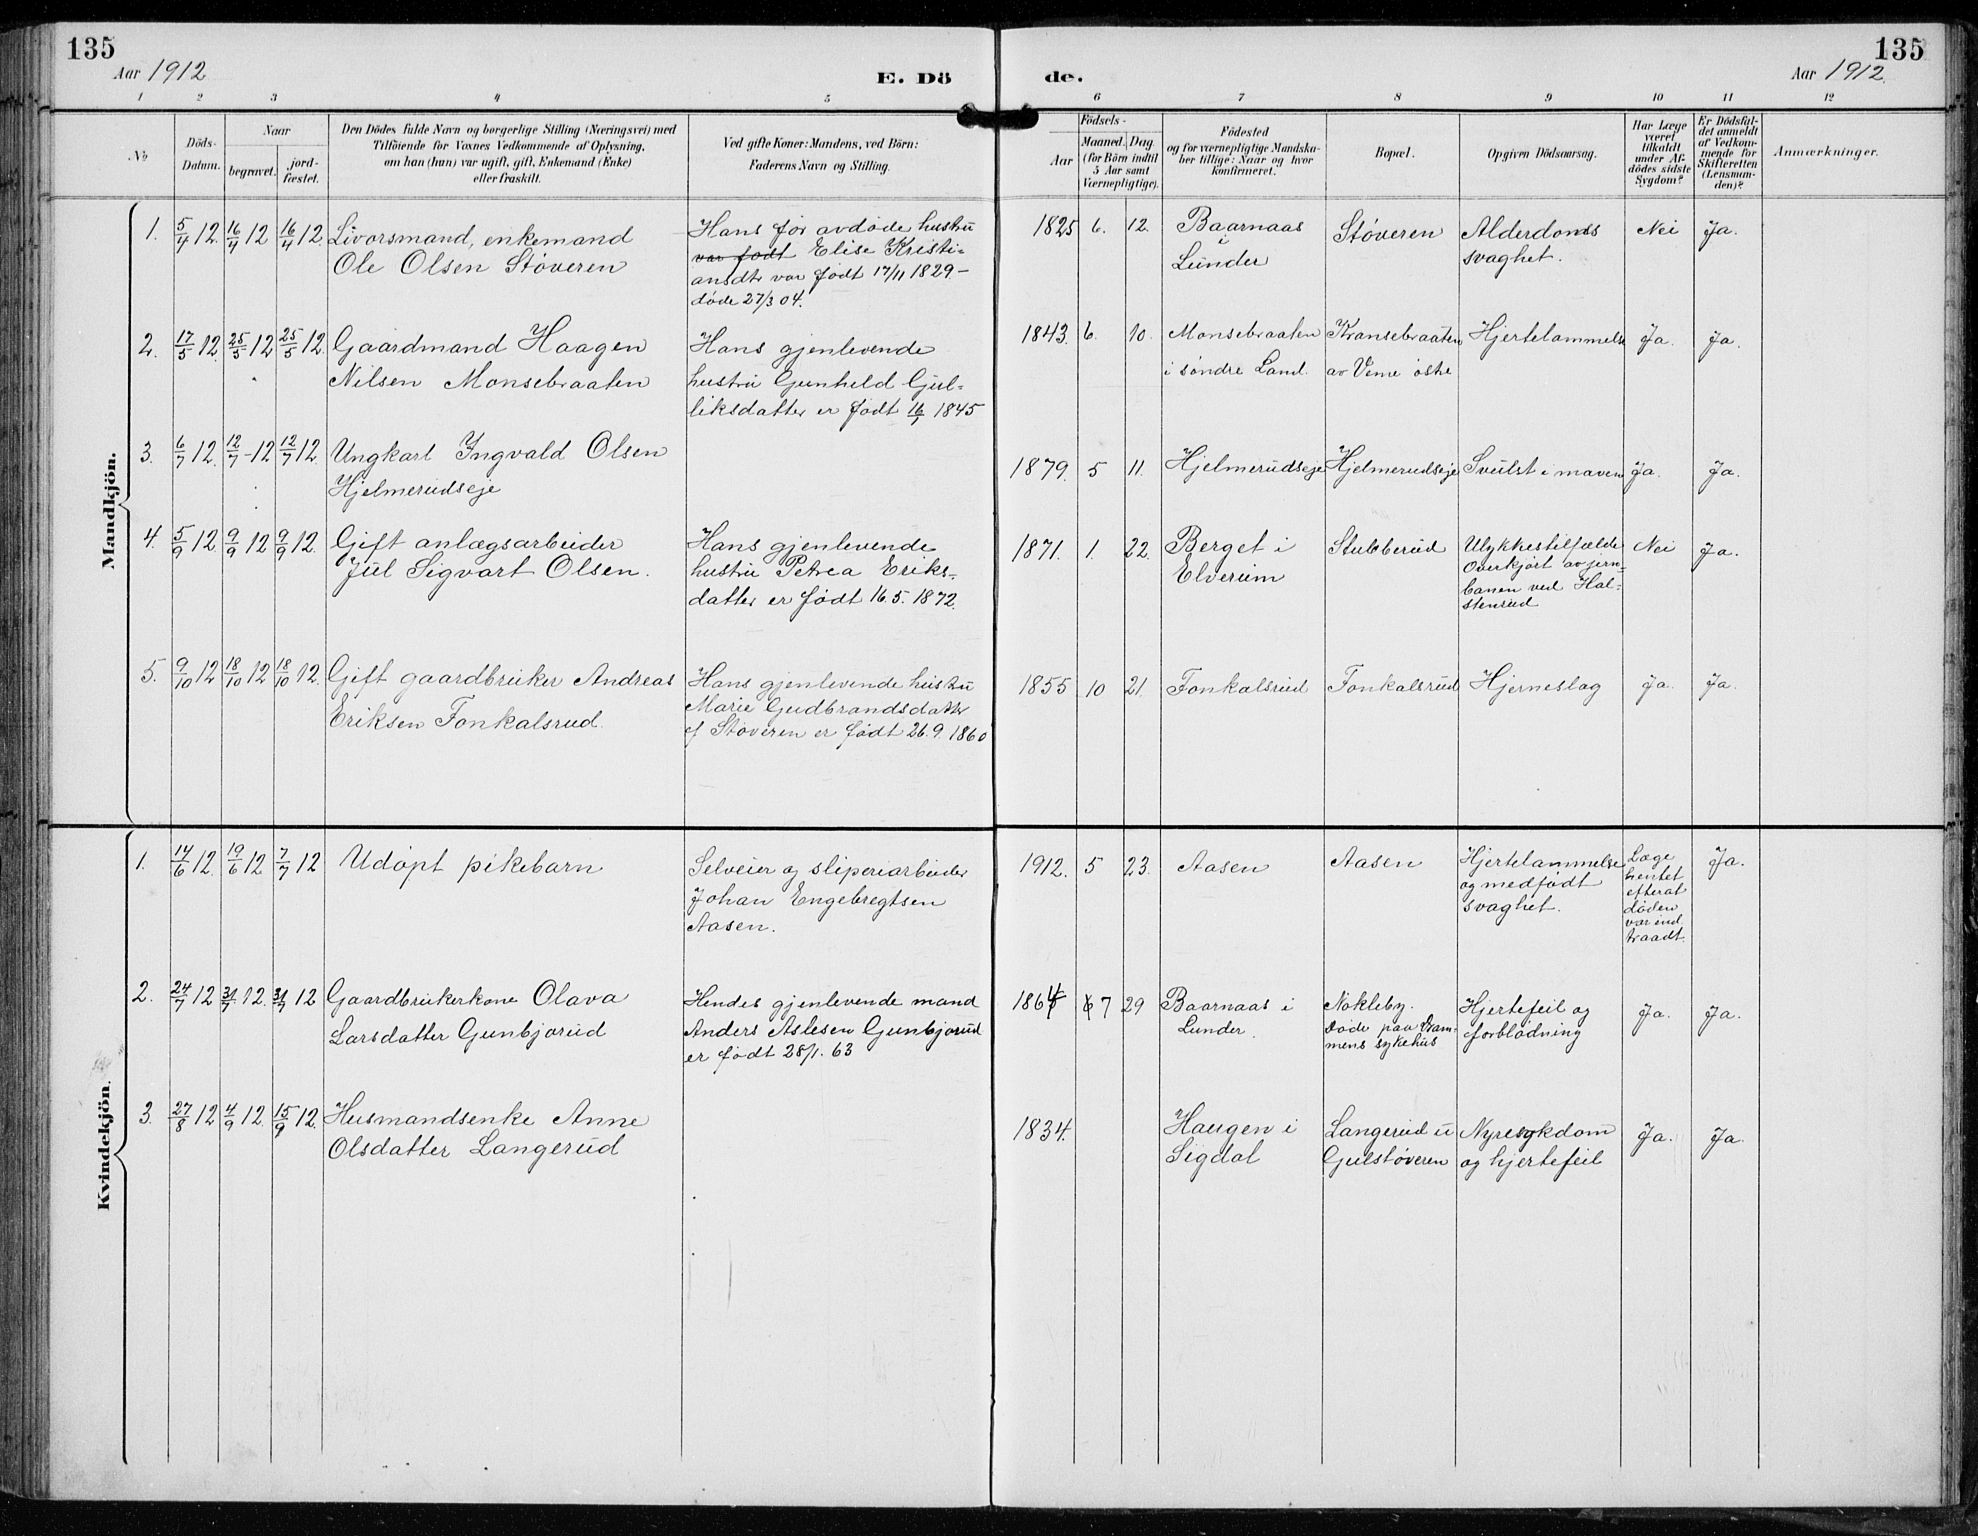 135
Aar 1912
E. Dö
1 2 3 4 5
No
Döds-
Datum.
Naar
begravet.
jord-
fæstet.
Den Dödes fulde Navn og borgerlige Stilling (Næringsvei) med
Tilföiende for Voxnes Vedkommende af Oplysning,
om han (hun) var ugift, gift, Enkemand (Enke)
eller fraskilt.
Ved gifte Koner: Mandens, ved Börn:
Faderens Navn og Stilling.
Mandkjön.
1. 5/4 12. 16/4 12 16/4 12. Livorsmand, enkemand
Ole Olsen Støveren
Hans før avdøde hustru
var født Elise Kristi-
ansdtr var født 17/11 1829-
døde 27/3 04.
2. 17/5 12. 25/5 12 25/5 12. Gaardmand Haagen
Nilsen Monsebraaten
Hans gjenlevende
hustru Gunhild Gul-
liksdatter er født 16/7 1845
3. 6/7 12. 12/7-12 12/7 12. Ungkarl Ingvald Olsen
Hjelmerudseje
4. 5/9 12. 9/9 12 9/9 12. Gift anlægsarbeider
Jul Sigvart Olsen.
Hans gjenlevende
hustru Petrea Eriks-
datter er født 16.5. 1872.
5. 9/10 12 18/10 12 18/10 12. Gift gaardbruker Andreas
Eriksen Fonkalsrud.
Hans gjenlevende hustru
Marie Gudbrandsdatter
af Støveren er født 26.9. 1860
Kvindekjön.
1. 14/6 12. 19/6 12 7/7 12 Udøpt pikebarn
Selveier og sliperiarbeider
Johan Engebregtsen
Aasen.
2. 24/7 12 31/7 12. 31/7 12 Gaardbrukerkone Olava
Larsdatter Gunbjørud
Hendes gjenlevende mand
Anders Aslesen Gunbjørud
er født 28/1. 63
3. 27/8 12 4/9 12. 15/9 12. Husmandsenke Anne
Olsdatter Langerud
135
Aar 1912.
de.
6 7 8 9 10 11 12
Födsels-
Aar
Maaned. Dag
(for Börn indtil
5 Aar samt
Værnepligtige).
Födested
og for værnepligtige Mandska-
ber tillige: Naar og hvor
konfirmeret.
Bopæl.
Opgiven Dödsaarsag.
Har Læge
været
tilkaldt
under Af-
dödes sidste
Sygdom?
Er Dödsfal-
det anmeldt
af Vedkom-
mende for
Skifteretten
(Lensman-
den)?
Anmærkninger.
1825 6. 12. Baarnaas
i
Lunder
Støveren
Alderdoms
svaghet.
Nei Ja.
1843. 6. 10. Monsebraaten
i søndre Land.
Kransebraaten
av Veme østre
Hjertelammelse Ja. Ja.
1879. 5 11. Hjelmerudseje Hjelmerudseje Svulst i maven Ja. Ja.
1871. 1. 22. Berget i
Elverum
Stubberud
Ulykkestilfælde
Overkjørt av jern-
banen ved Hal-
stenrud
Nei Ja.
1855 10 21. Fonkalsrud Fonkalsrud Hjerneslag Ja. Ja.
1912. 5 23. Aasen Aasen
Hjertelammelse
og medfødt
svaghet.
Læge
hentet
efterat
døden
var ind
traadt.
Ja.
1864 7 29 Baarnaas i
Lunder.
Nokleby.
døde paa Dram-
mens sykehus
Hjertefeil og
forblødning
Ja. Ja.
1834. Haugen i
Sigdal
Langerud u
Gulstøveren
Nyresykdom
og hjertefeil
Ja. Ja.